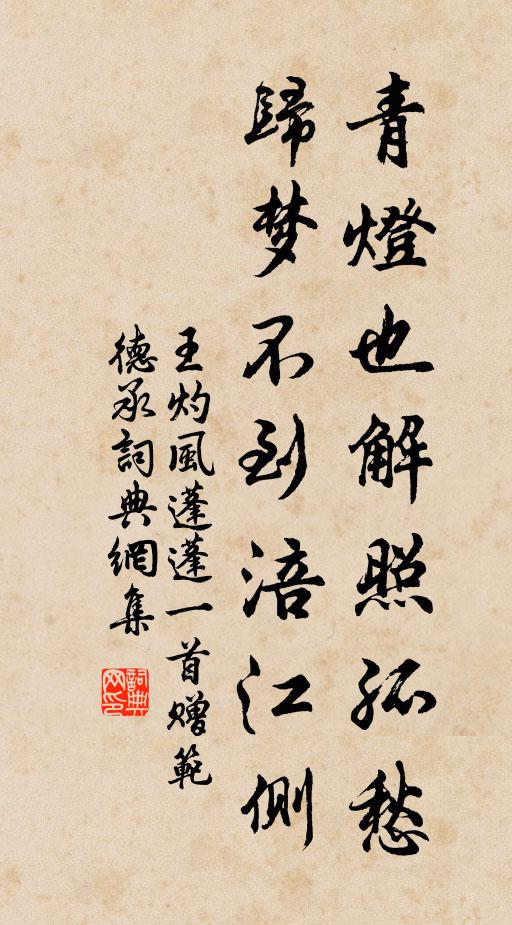 青燈也解照孤愁
歸梦不到涪江側
王灼風蓬蓬一首赠範
德承詞典網集
詞典网印